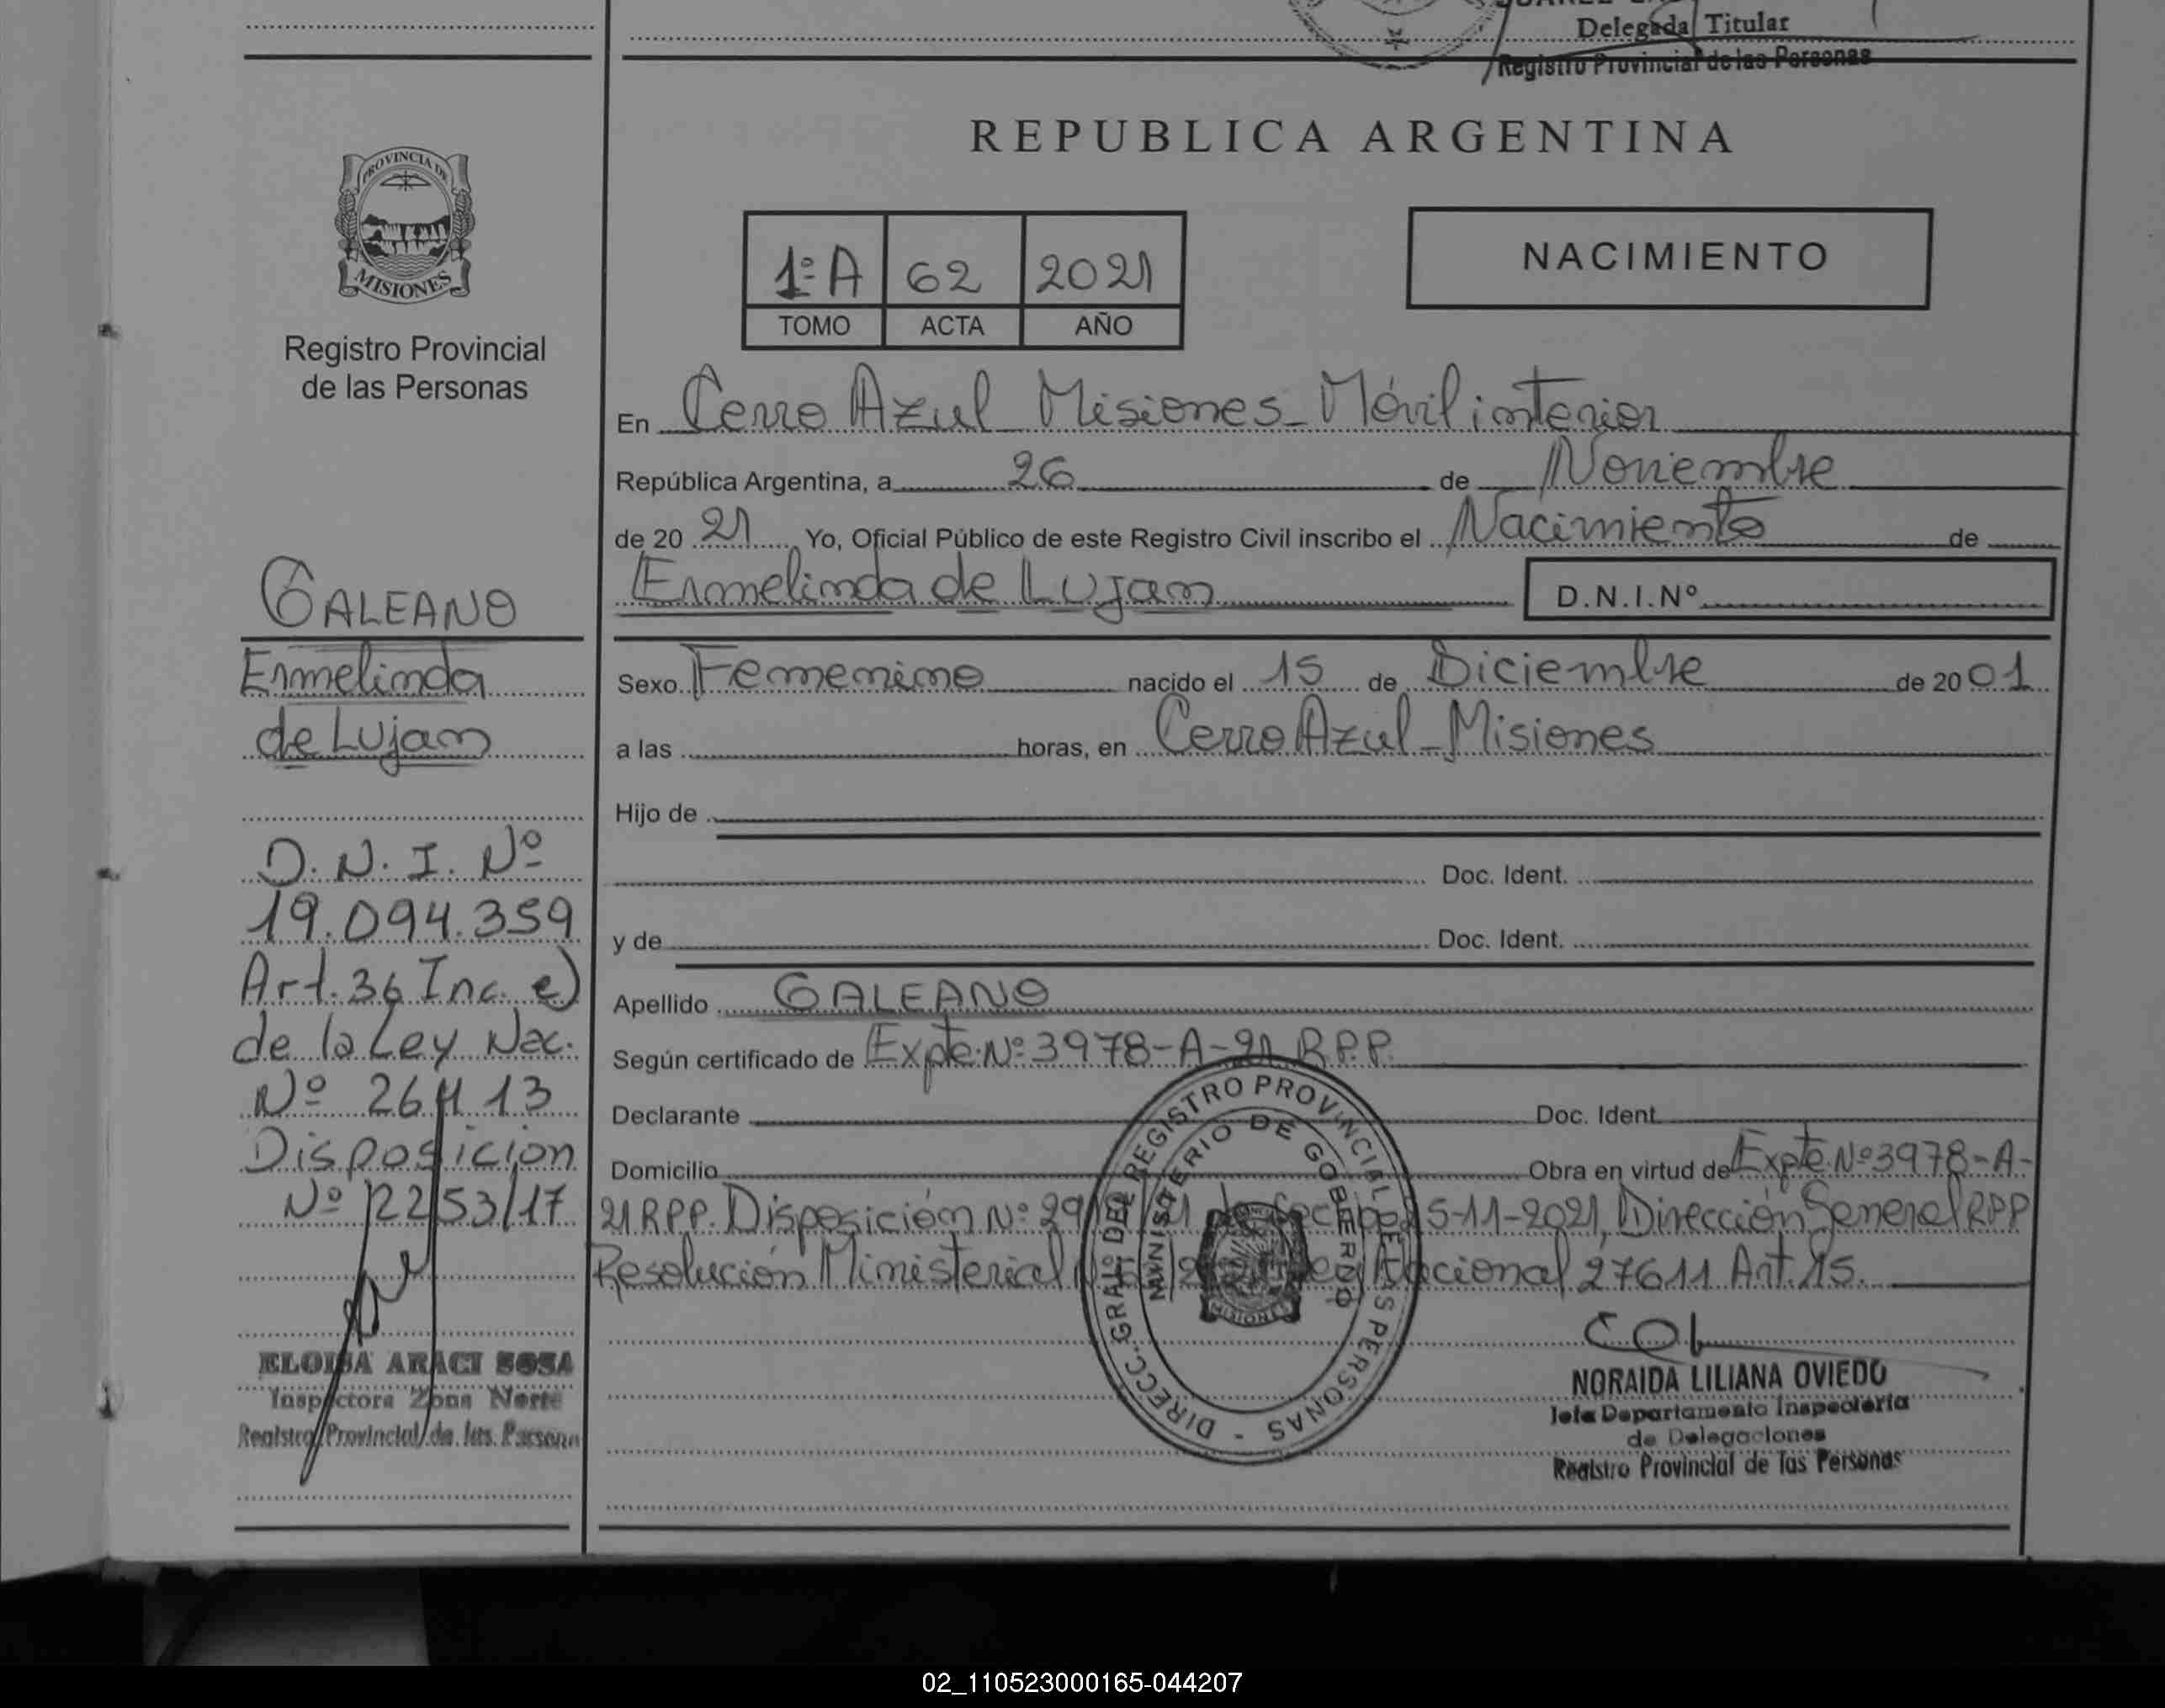 Delegada Titular
Registro Provincial de las Personas
PROVINCIA DE
MISIONES
Registro Provincial
de las Personas
GALEANO
Ermelinda
de Lujan
D.N.I. Nº
19.094.359
Art. 36 Inc. e)
de la Ley Nac.
Nº 26413
Disposición
Nº 2253/17
ELOISA ARACI SOSA
Inspectora Zona Norte
Registro Provincial de las Person
REPUBLICA ARGENTINA
1º A 62 2021
TOMO ACTA AÑO
NACIMIENTO
En Cerro Azul Misiones - Móvil interior
República Argentina, a 26 de Noviembre
de 2021 Yo, Oficial Público de este Registro Civil inscribo el Nacimiento de
Ermelinda de Lujan D.N.I.Nº
Sexo Femenino nacido el 15 de Diciembre de 2001
a las horas, en Cerro Azul - Misiones
Hijo de
Doc. Ident.
y de Doc. Ident.
Apellido GALEANO
Según certificado de Expte. Nº 3978-A-21 R.P.P.
Declarante Doc. Ident.
Domicilio Obra en virtud de Expte. Nº 3978-A-
21 RPP. Disposición Nº 5-11-2021, Dirección General RPP
Resolución Ministerial Nacional 27611 Art. 15.
DIRECC. GRAL. DEL REGISTRO PROVINCIAL DE LAS PERSONAS -
MINISTERIO DE GOBIERNO
MISIONES
NORAIDA LILIANA OVIEDO
Jefa Departamento Inspectoría
de Delegaciones
Registro Provincial de las Personas
02_110523000165-044207